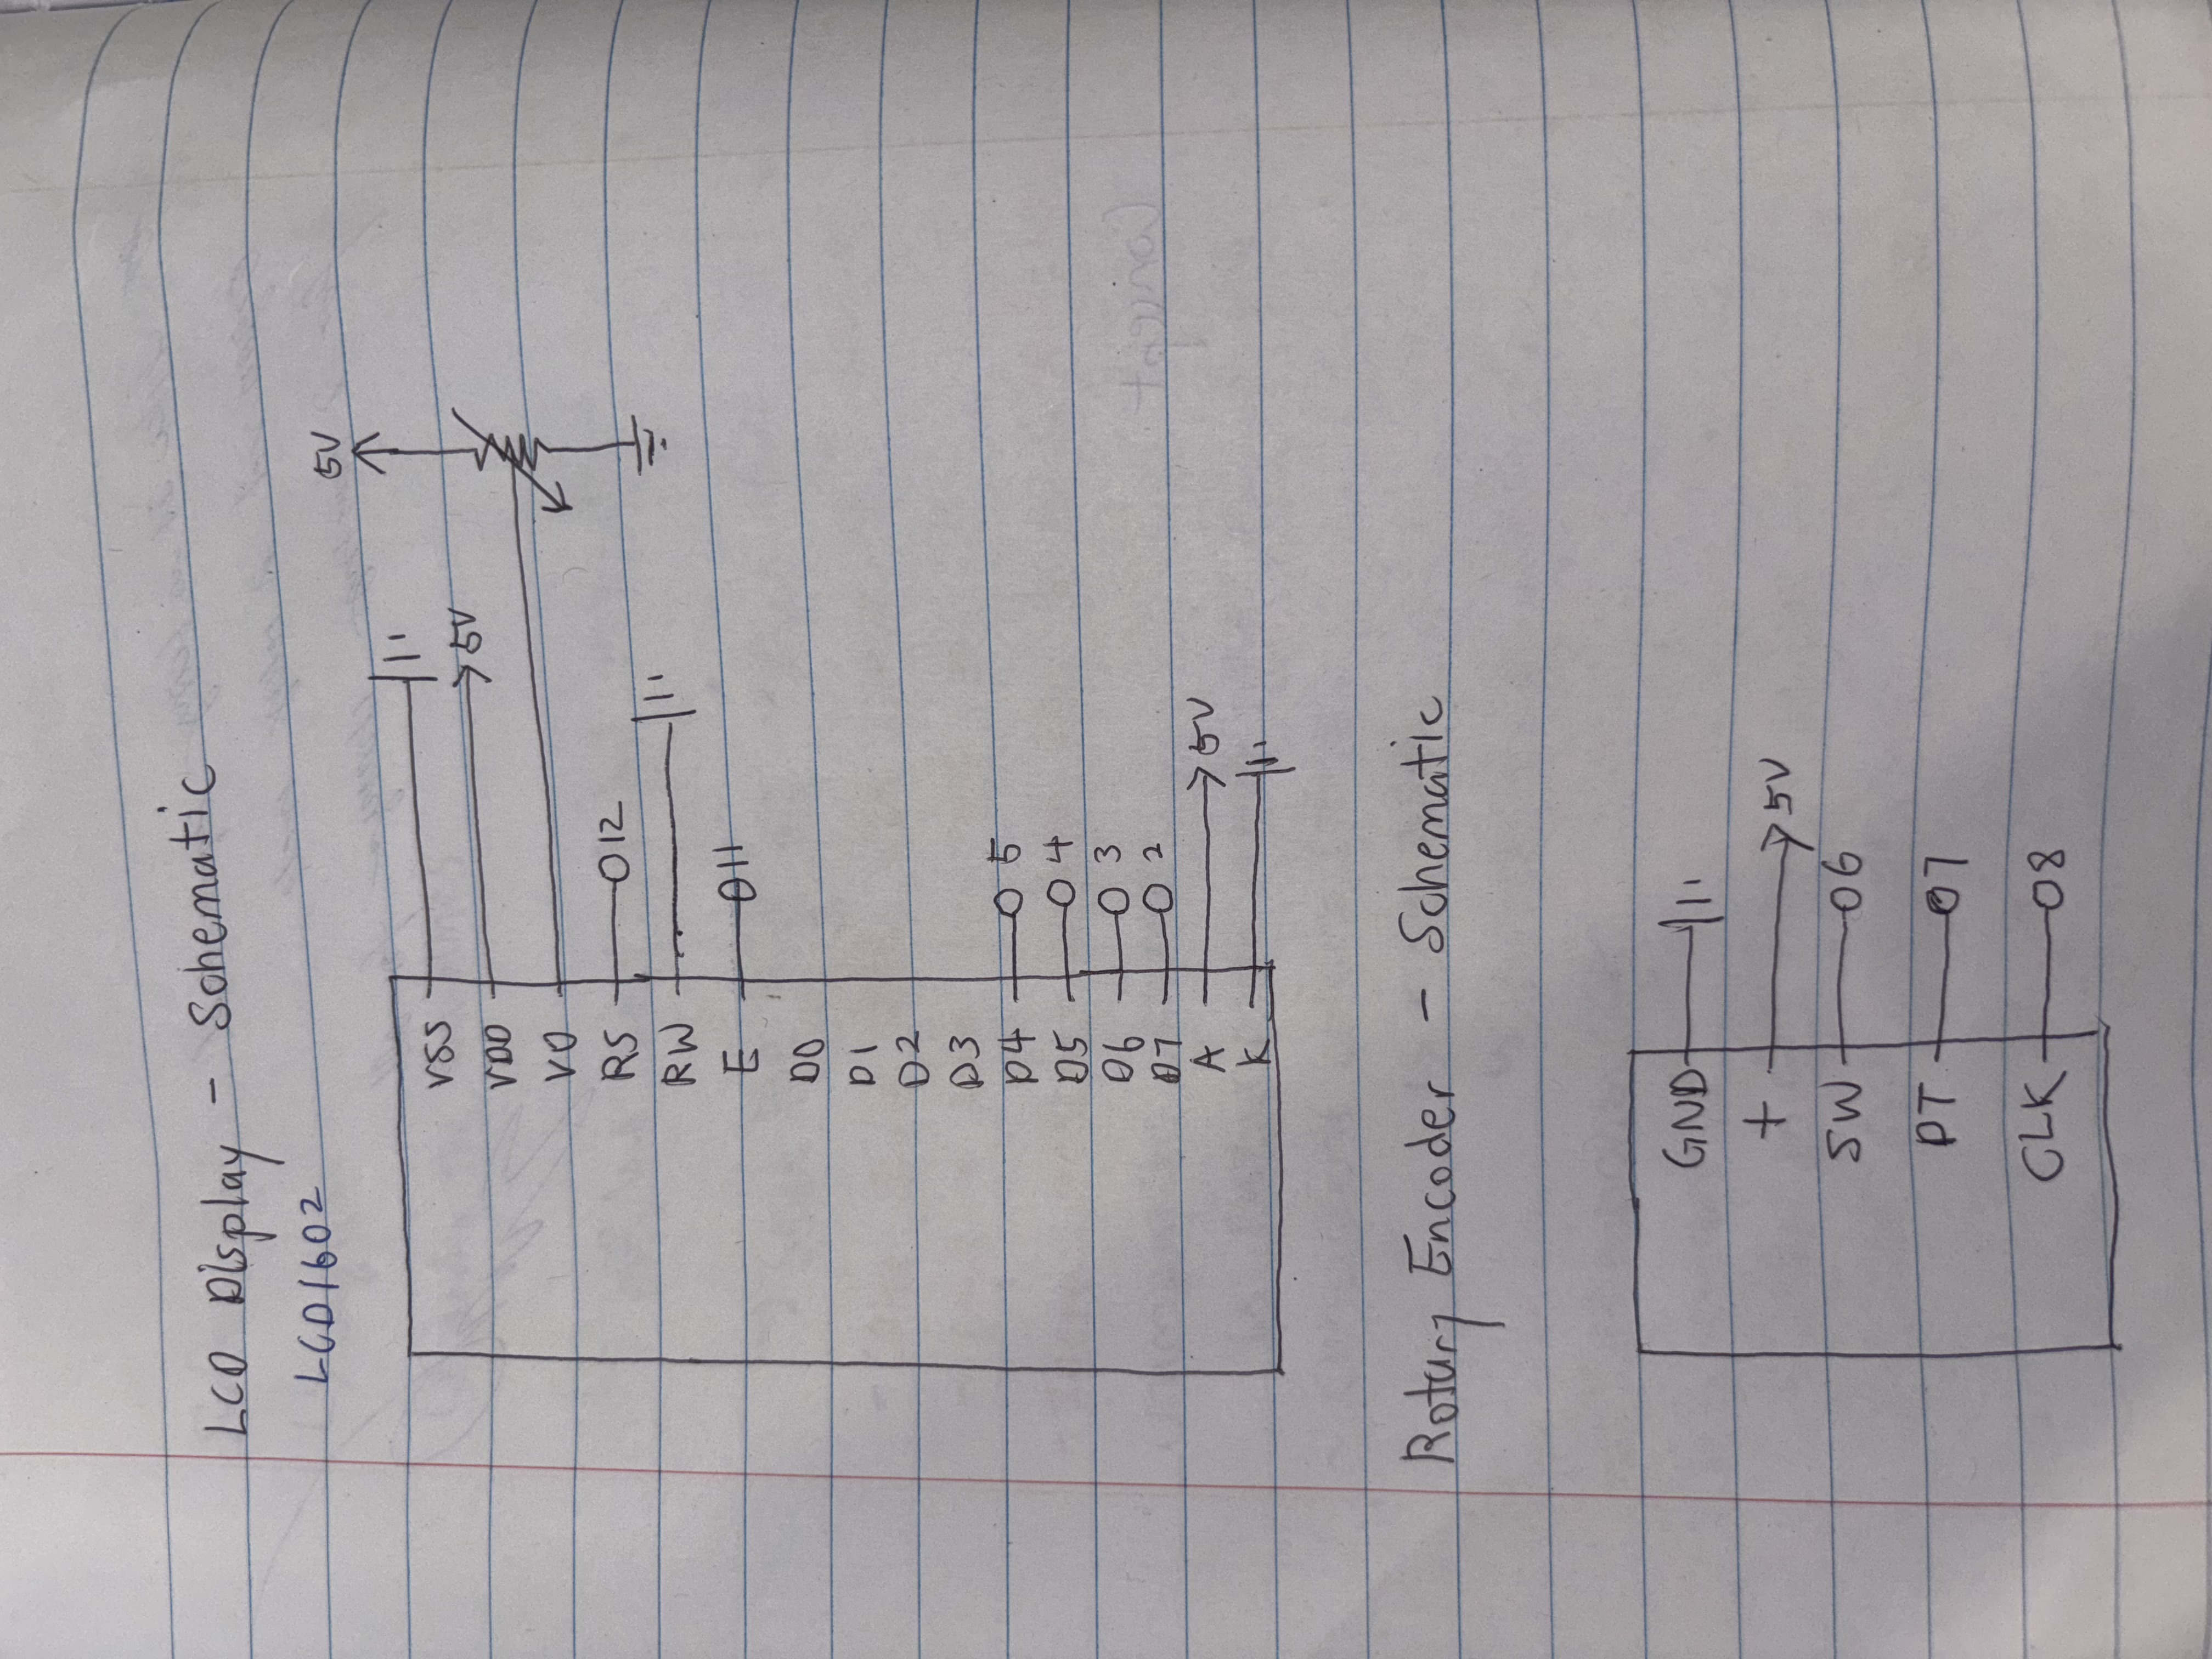 LCD Display - Schematic
LCD1602
5V
VSS
VDD 5V
VO
RS 12
RW
E 11
D0
D1
D2
D3
D4 5
D5 4
D6 3
D7 2
A 5V
K
Rotary Encoder - Schematic
GND
+ 5V
SW 6
DT 7
CLK 8